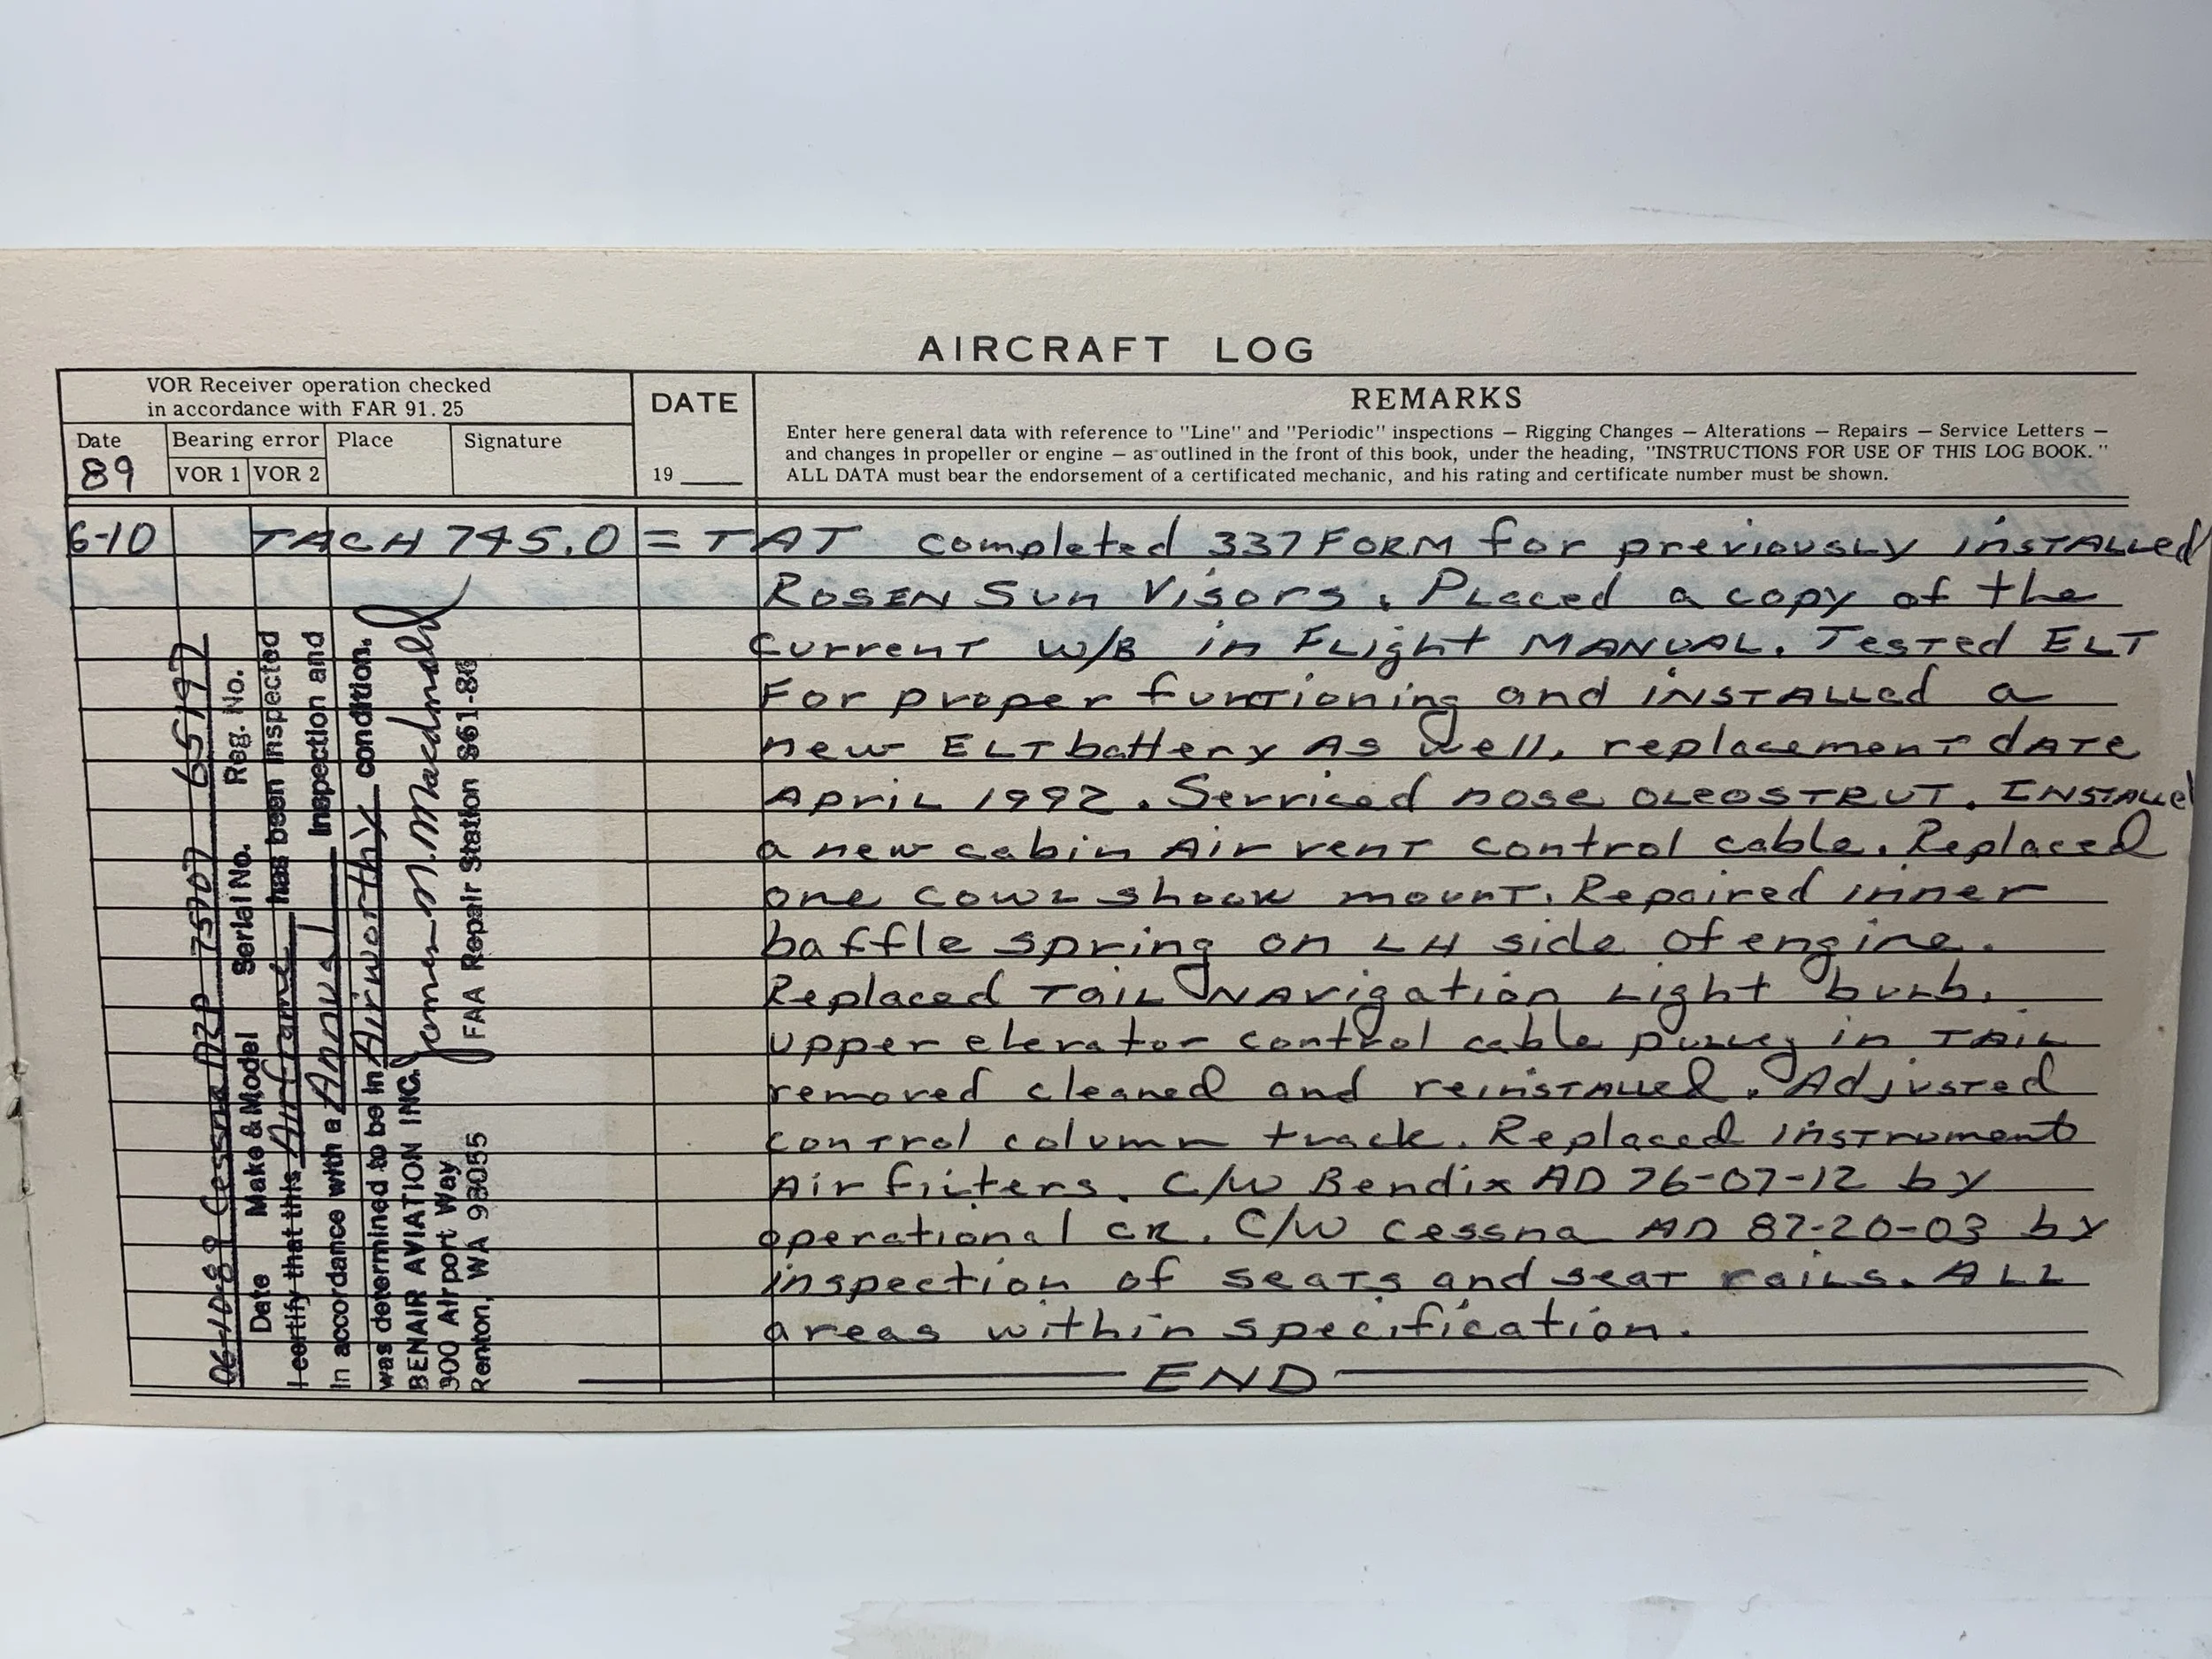 AIRCRAFT LOG
VOR Receiver operation checked
in accordance with FAR 91.25
Date
89
Bearing error
VOR 1 VOR 2
Place
Signature
DATE
19 ____
REMARKS
Enter here general data with reference to "Line" and "Periodic" inspections — Rigging Changes — Alterations — Repairs — Service Letters —
and changes in propeller or engine — as outlined in the front of this book, under the heading, "INSTRUCTIONS FOR USE OF THIS LOG BOOK."
ALL DATA must bear the endorsement of a certificated mechanic, and his rating and certificate number must be shown.
6-10 TACH 745.0 = TAT completed 337 FORM for previously installed
ROSEN Sun Visors. Placed a copy of the
current W/B in Flight MANUAL. Tested ELT
For proper funtioning and installed a
new ELT battery As well, replacement date
April 1992. Serviced nose OLEOSTRUT. INSTALLED
a new cabin Air vent control cable. Replaced
one cowl shock mount. Repaired inner
baffle spring on LH side of engine.
Replaced Tail Navigation Light bulb.
upper elevator control cable pulley in TAIL
removed cleaned and reinstalled. Adjusted
control column track. Replaced instrument
Air filters. C/W Bendix AD 76-07-12 by
operational ck. C/W Cessna AD 87-20-03 by
inspection of seats and seat rails. ALL
areas within specification.
END
06-10-89 Cessna 65197
Date Make & Model Serial No. Reg. No.
I certify that this Airframe has been inspected
in accordance with a Annual inspection and
was determined to be in Airworthy condition.
BENAIR AVIATION INC. James M. Macdonald
300 Airport Way FAA Repair Station 861-86
Renton, WA 98055